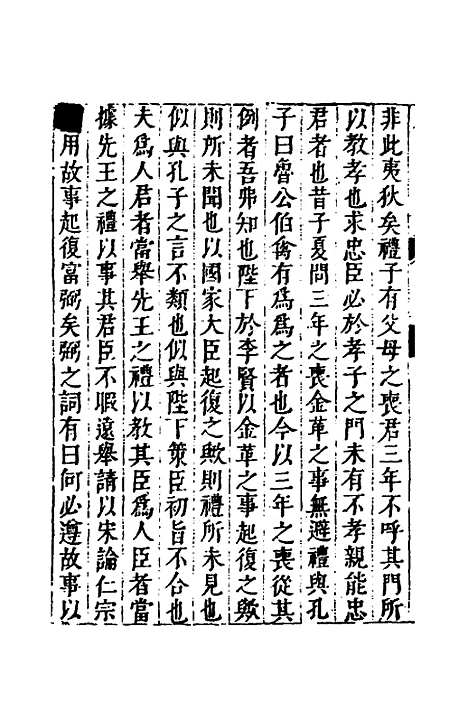 非此夷狄矣禮子有父母之喪君三年不呼其門所
以教孝也求忠臣必於孝子之門未有不孝親能忠
君者也昔子夏問三年之喪金革之事無避禮與孔
子曰魯公伯禽有爲爲之者也今以三年之喪從其
例者吾弗知也陛下於李賢以金革之事起復之歟
則所未聞也以國家大臣起復之歟則禮所未見也
似與孔子之言不類也似與陛下策臣初旨不合也
夫爲人君者當舉先王之禮以教其臣爲人臣者當
據先王之禮以事其君臣不暇遠舉請以宋論仁宗
用故事起復富弼矣弼之詞有曰何必遵故事以